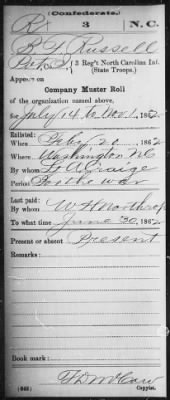 (Confederate.)
R 3 N.C.
B. F. Russell
3 Reg't North Carolina Inf.
(State Troops.)
Appears on
Company Muster Roll
of the organization named above,
for July 14 to Nov. 1, 1862.
Enlisted:
When Feby 20, 1862
Where Washington NC
By whom Lt. A. Craige
Period For the war
Last paid:
By whom W H Northrop
To what time June 30, 1862
Present or absent Present
Remarks:
Book mark:
(642)
Copyist.